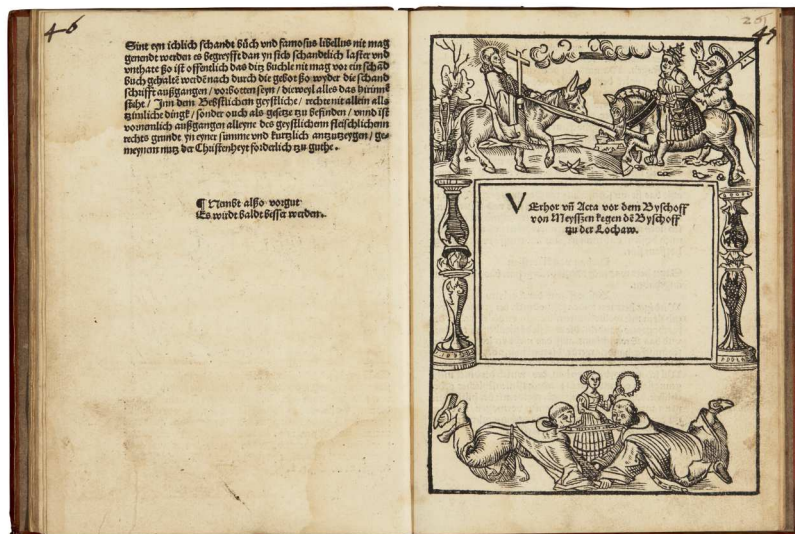 46
Sint eyn ichlich schandt bůch vnd famosus libellus nit mag
genendt werden es begreyfft dan yn sich schandtlich laster vnd
vnthatt ßo ist offentlich das ditz buchle nit mag vor ein schād
buch gehaltē werdē nach durch die gebot ßo wyder die schand
schrifft außgangen / vorbotten seyn / dieweyl alles das hirinnē
steht / Inn dem Bebstlichem geystliche / rechte nit allein alls
tzimliche dingk / sonder ouch als gesetze tzu befinden / vnnd ist
vornenlich außgangen alleyne des geystlichenn fleischlichenn
rechts grunde yn eyner summe vnd kurtzlich antzutzeygen / ge-
meynem nutz der Christenheyt forderlich tzu guthe.
¶ Nembt alßo vorgut
Es wirdt baldt besser werden.
VErhor vñ Acta vor dem Byschoff
von Meyszen kegen dē Byschoff
tzu der Lochaw.